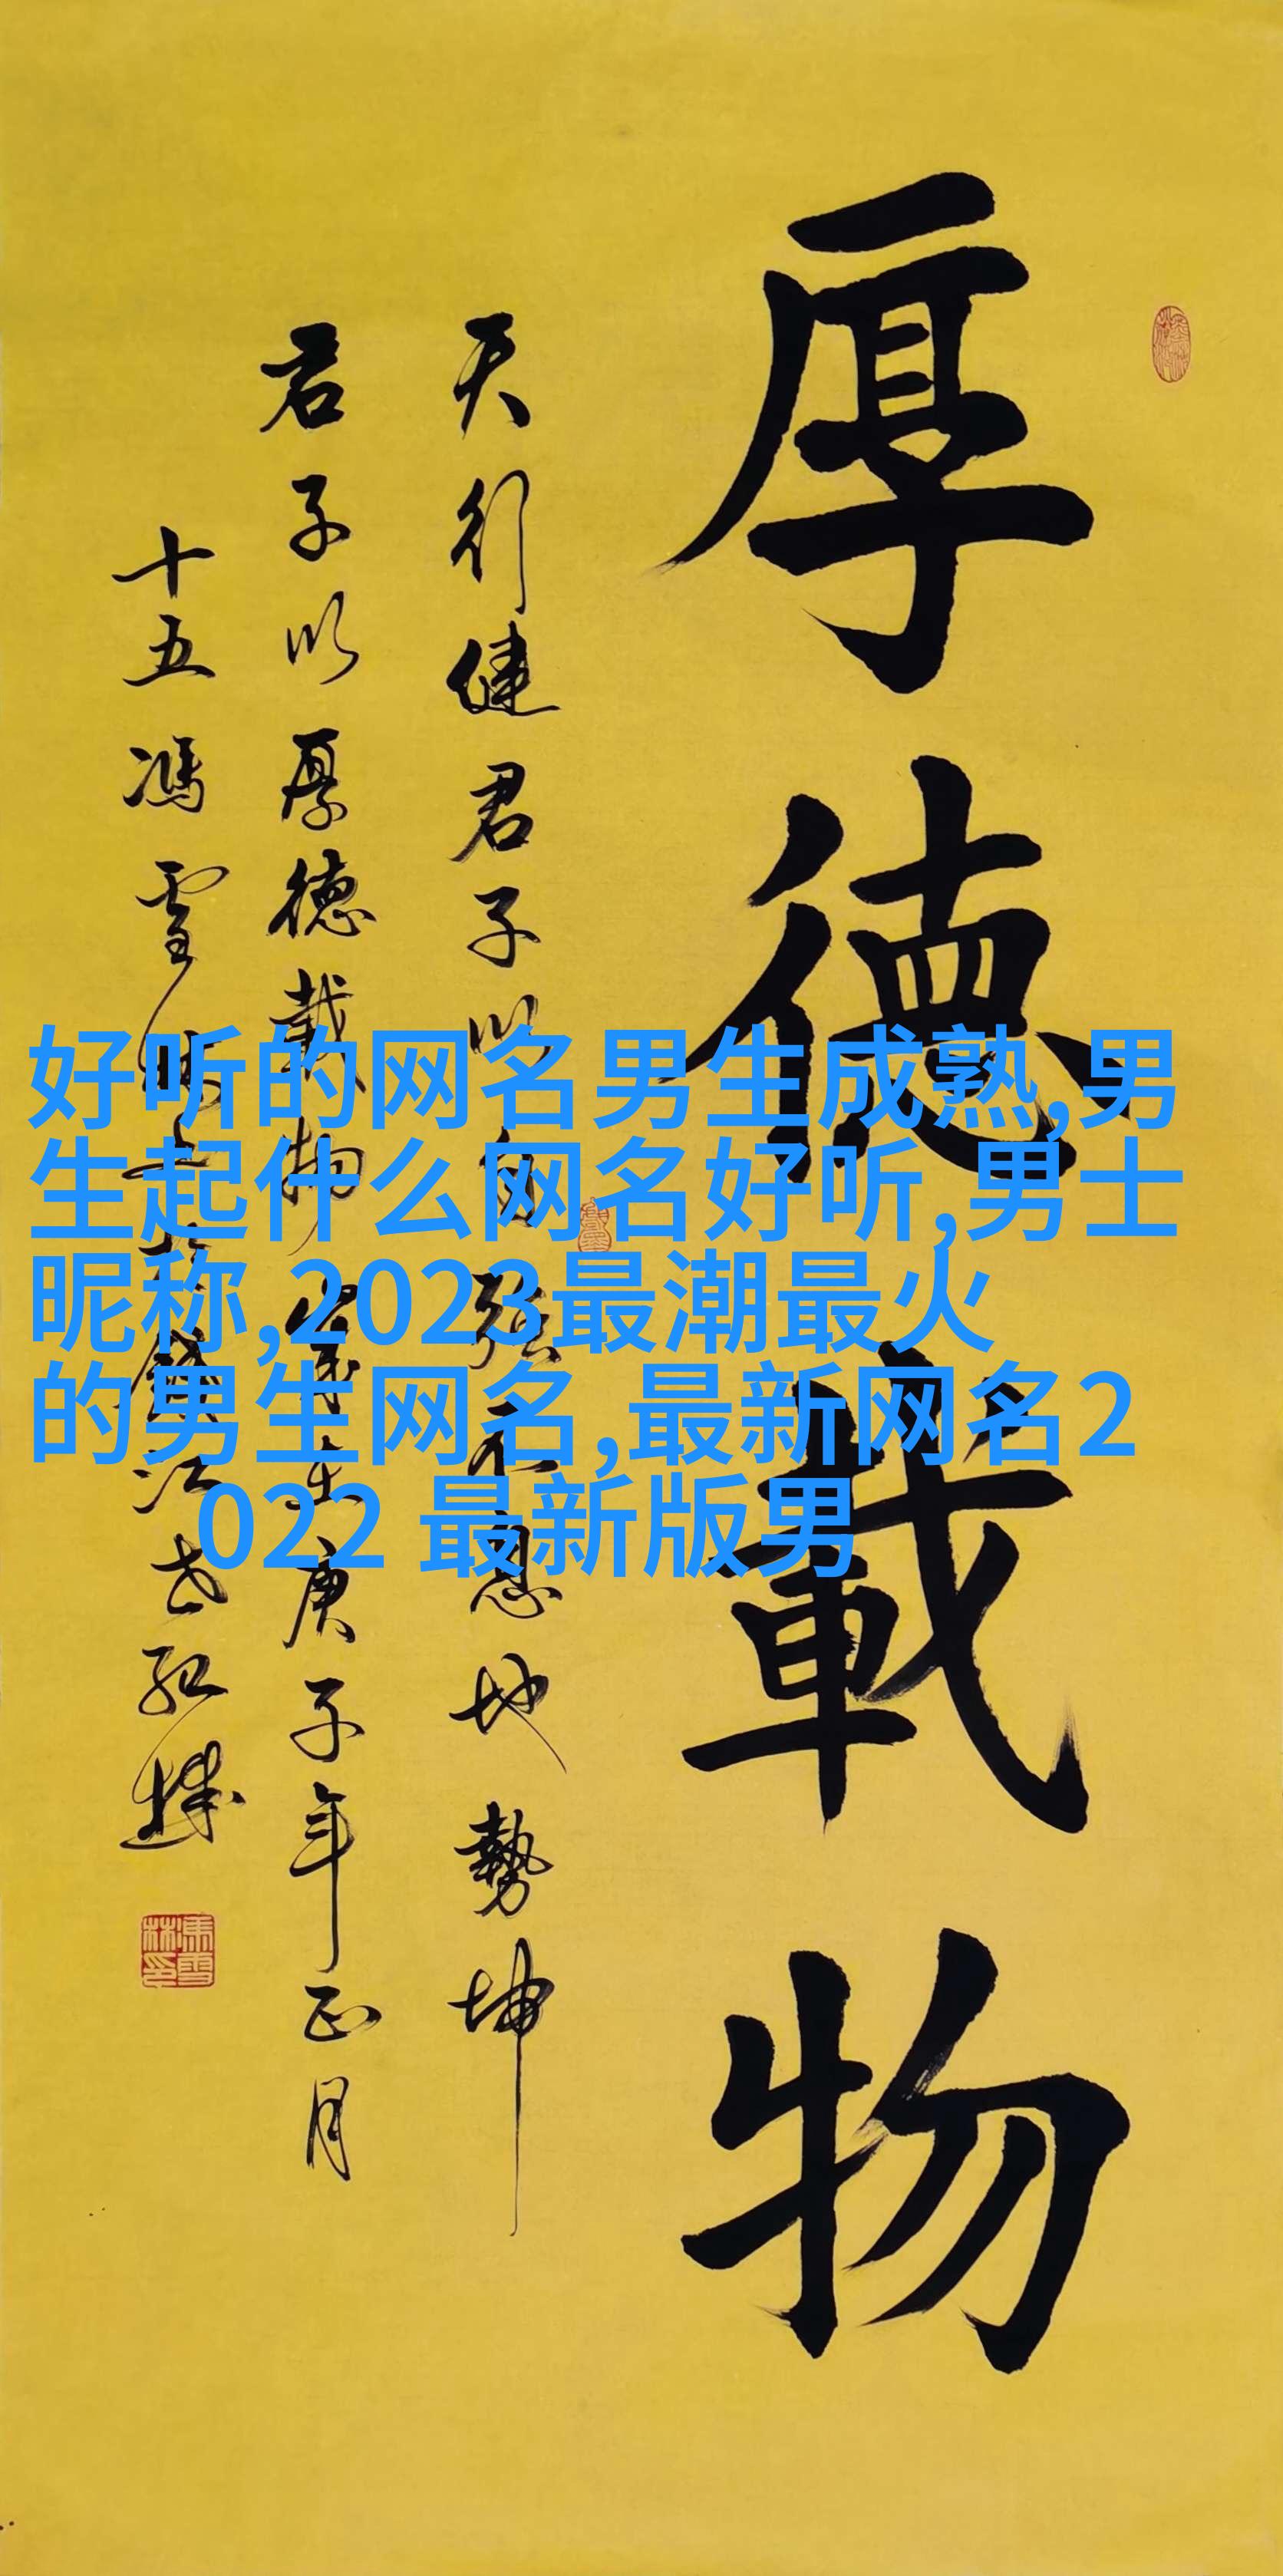 厚德載物
天行健君子以自强不息地勢坤
君子以厚德載物 歲在庚子年正月
十五馮雪林
好听的网名男生成熟,男
生起什么网名好听,男士
昵称,2023最潮最火
的男生网名,最新网名2
022 最新版男
馮雪林印